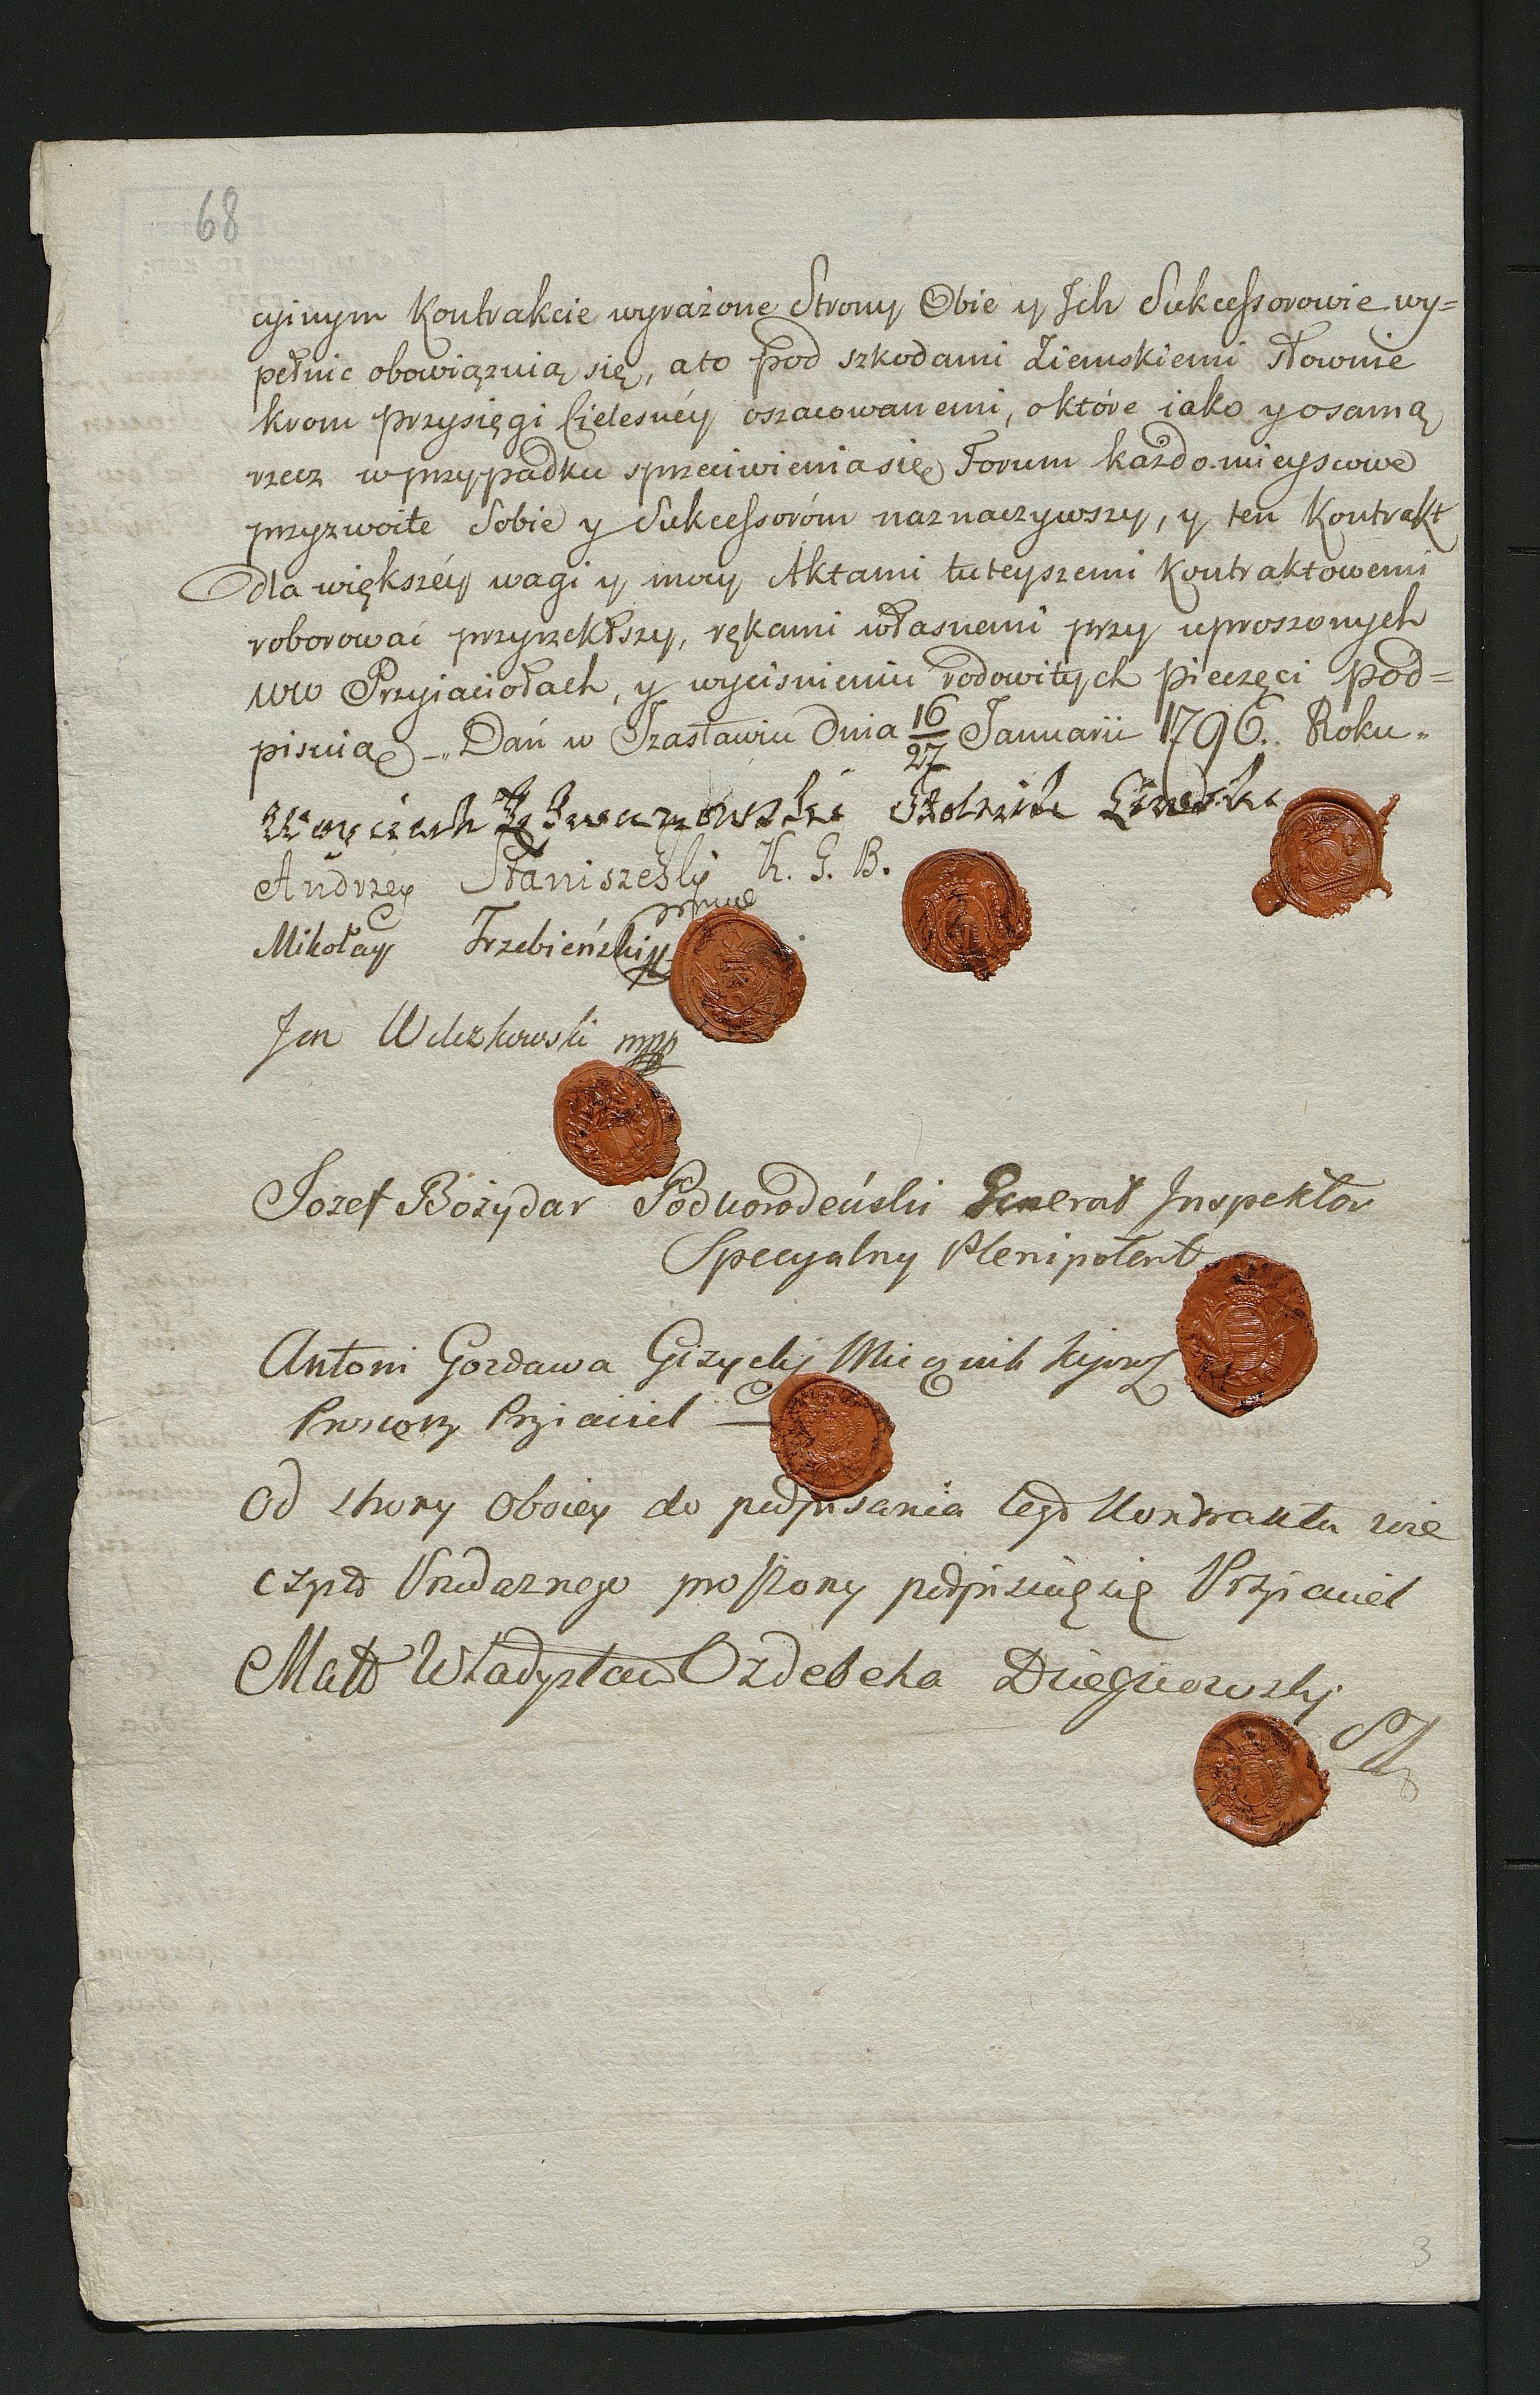 68
cyinym Kontrakcie wyrażone Strony Obie y Jch Sukcessorowie wy=
pełnic obowiązuią się, a to pod szkodami Ziemskiemi słownie
krom przysięgi Cielesnéy oszacowanemi, o które iako y o samą
rzecz w przypadku sprzeciwienia się Forum każdo mieyscowe
przyzwoite Sobie y Sukcessoróm naznaczywszy, y ten Kontrakt
dla większéy wagi y mocy Aktami tuteyszemi Kontraktowemi
roborować przyrzekłszy, rękami własnemi przy uproszonych
WW Przyiaciołach, y wyciśnieniu rodowitych pieczęci pod=
pisuią _,, Dań w Jzasławiu Dnia 16/27 Januarii 1796. Roku.,
Woyciech
Andrzey Staniszesky K. G. B.
Mikołay Trzebieński
Jan Wilczkowski mpp
Jozef Bożydar Podhorodeński Generał Jnspektor
Specyalny Plenipotent
Antoni Gozdawa Giżycky Miecznik Kijows
Proszony Przyiaciel
Od strony oboiey do podpisania tego Kontraktu wie
czysto Przedaznego proszony podpisuię się Przyiaciel
Władysław Ozdebcha
3